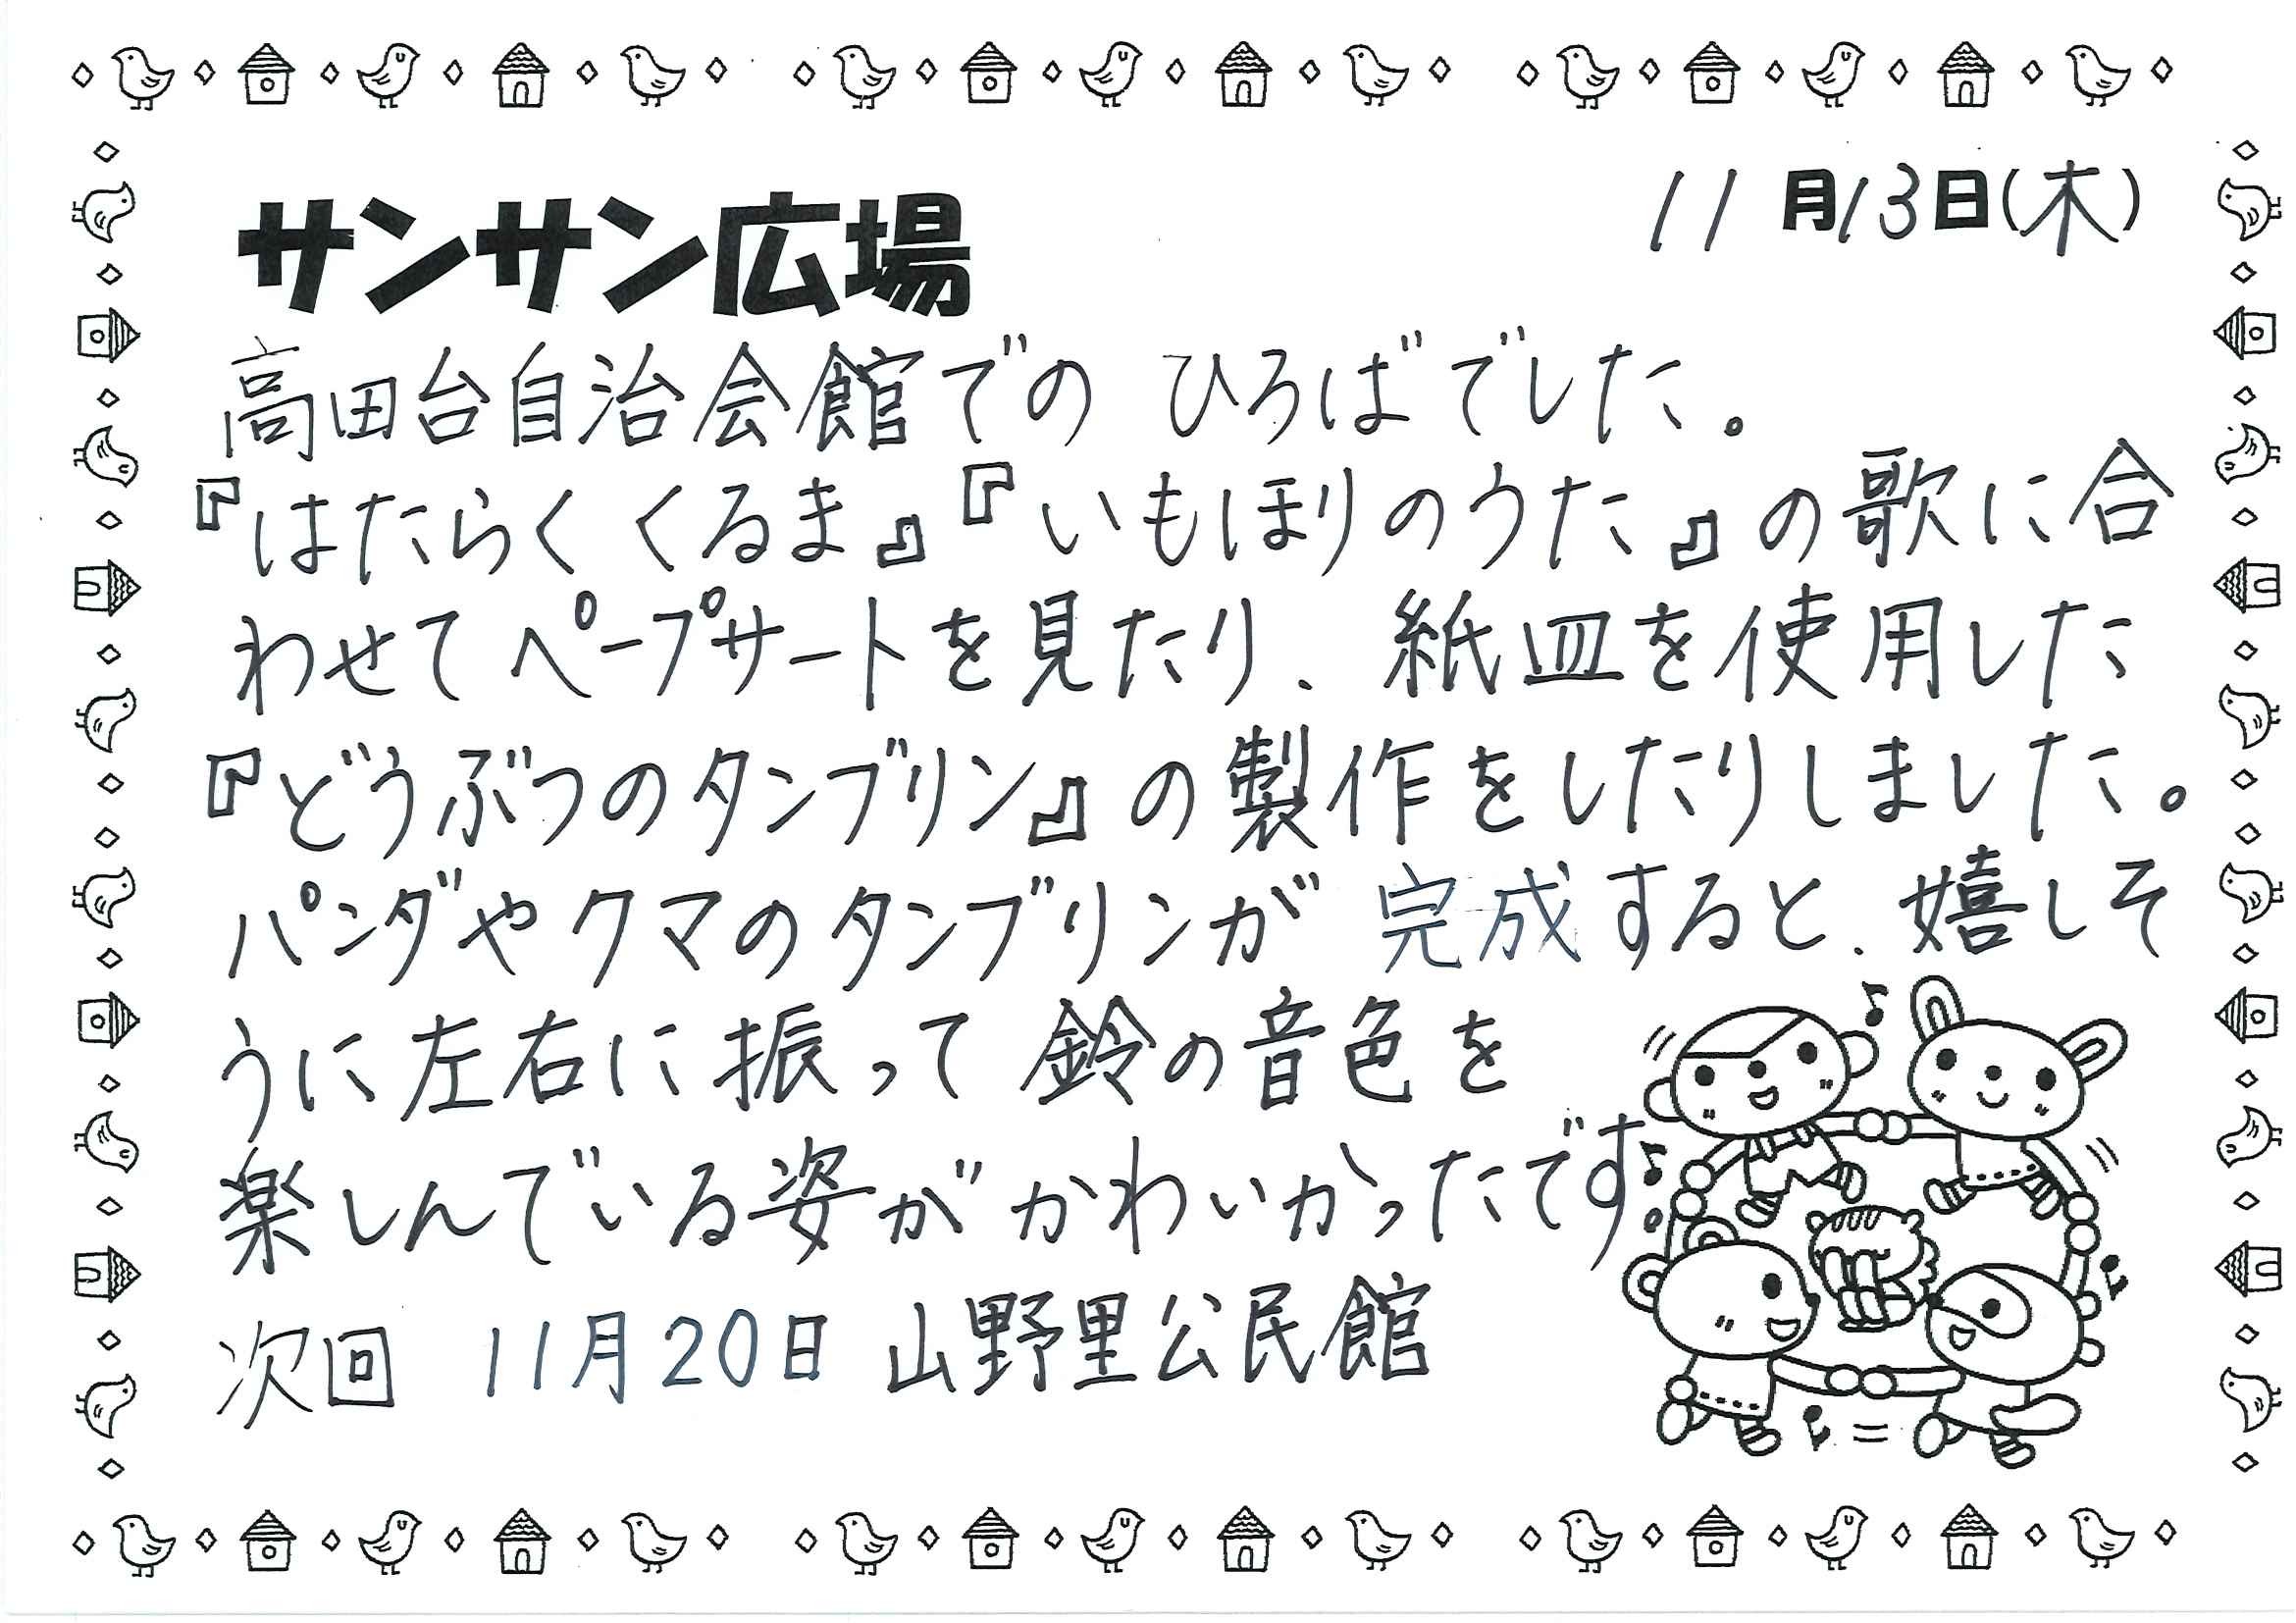 11月13日(木)
サンサン広場
高田台自治会館での ひろばでした。
『はたらくくるま』『いもほりのうた』の歌に合
わせてペープサートを見たり、紙皿を使用した
『どうぶつのタンブリン』の製作をしたりしました。
パンダやクマのタンブリンが完成すると、嬉しそ
うに左右に振って鈴の音色を
楽しんでいる姿がかわいかったです。
次回 11月20日 山野里公民館